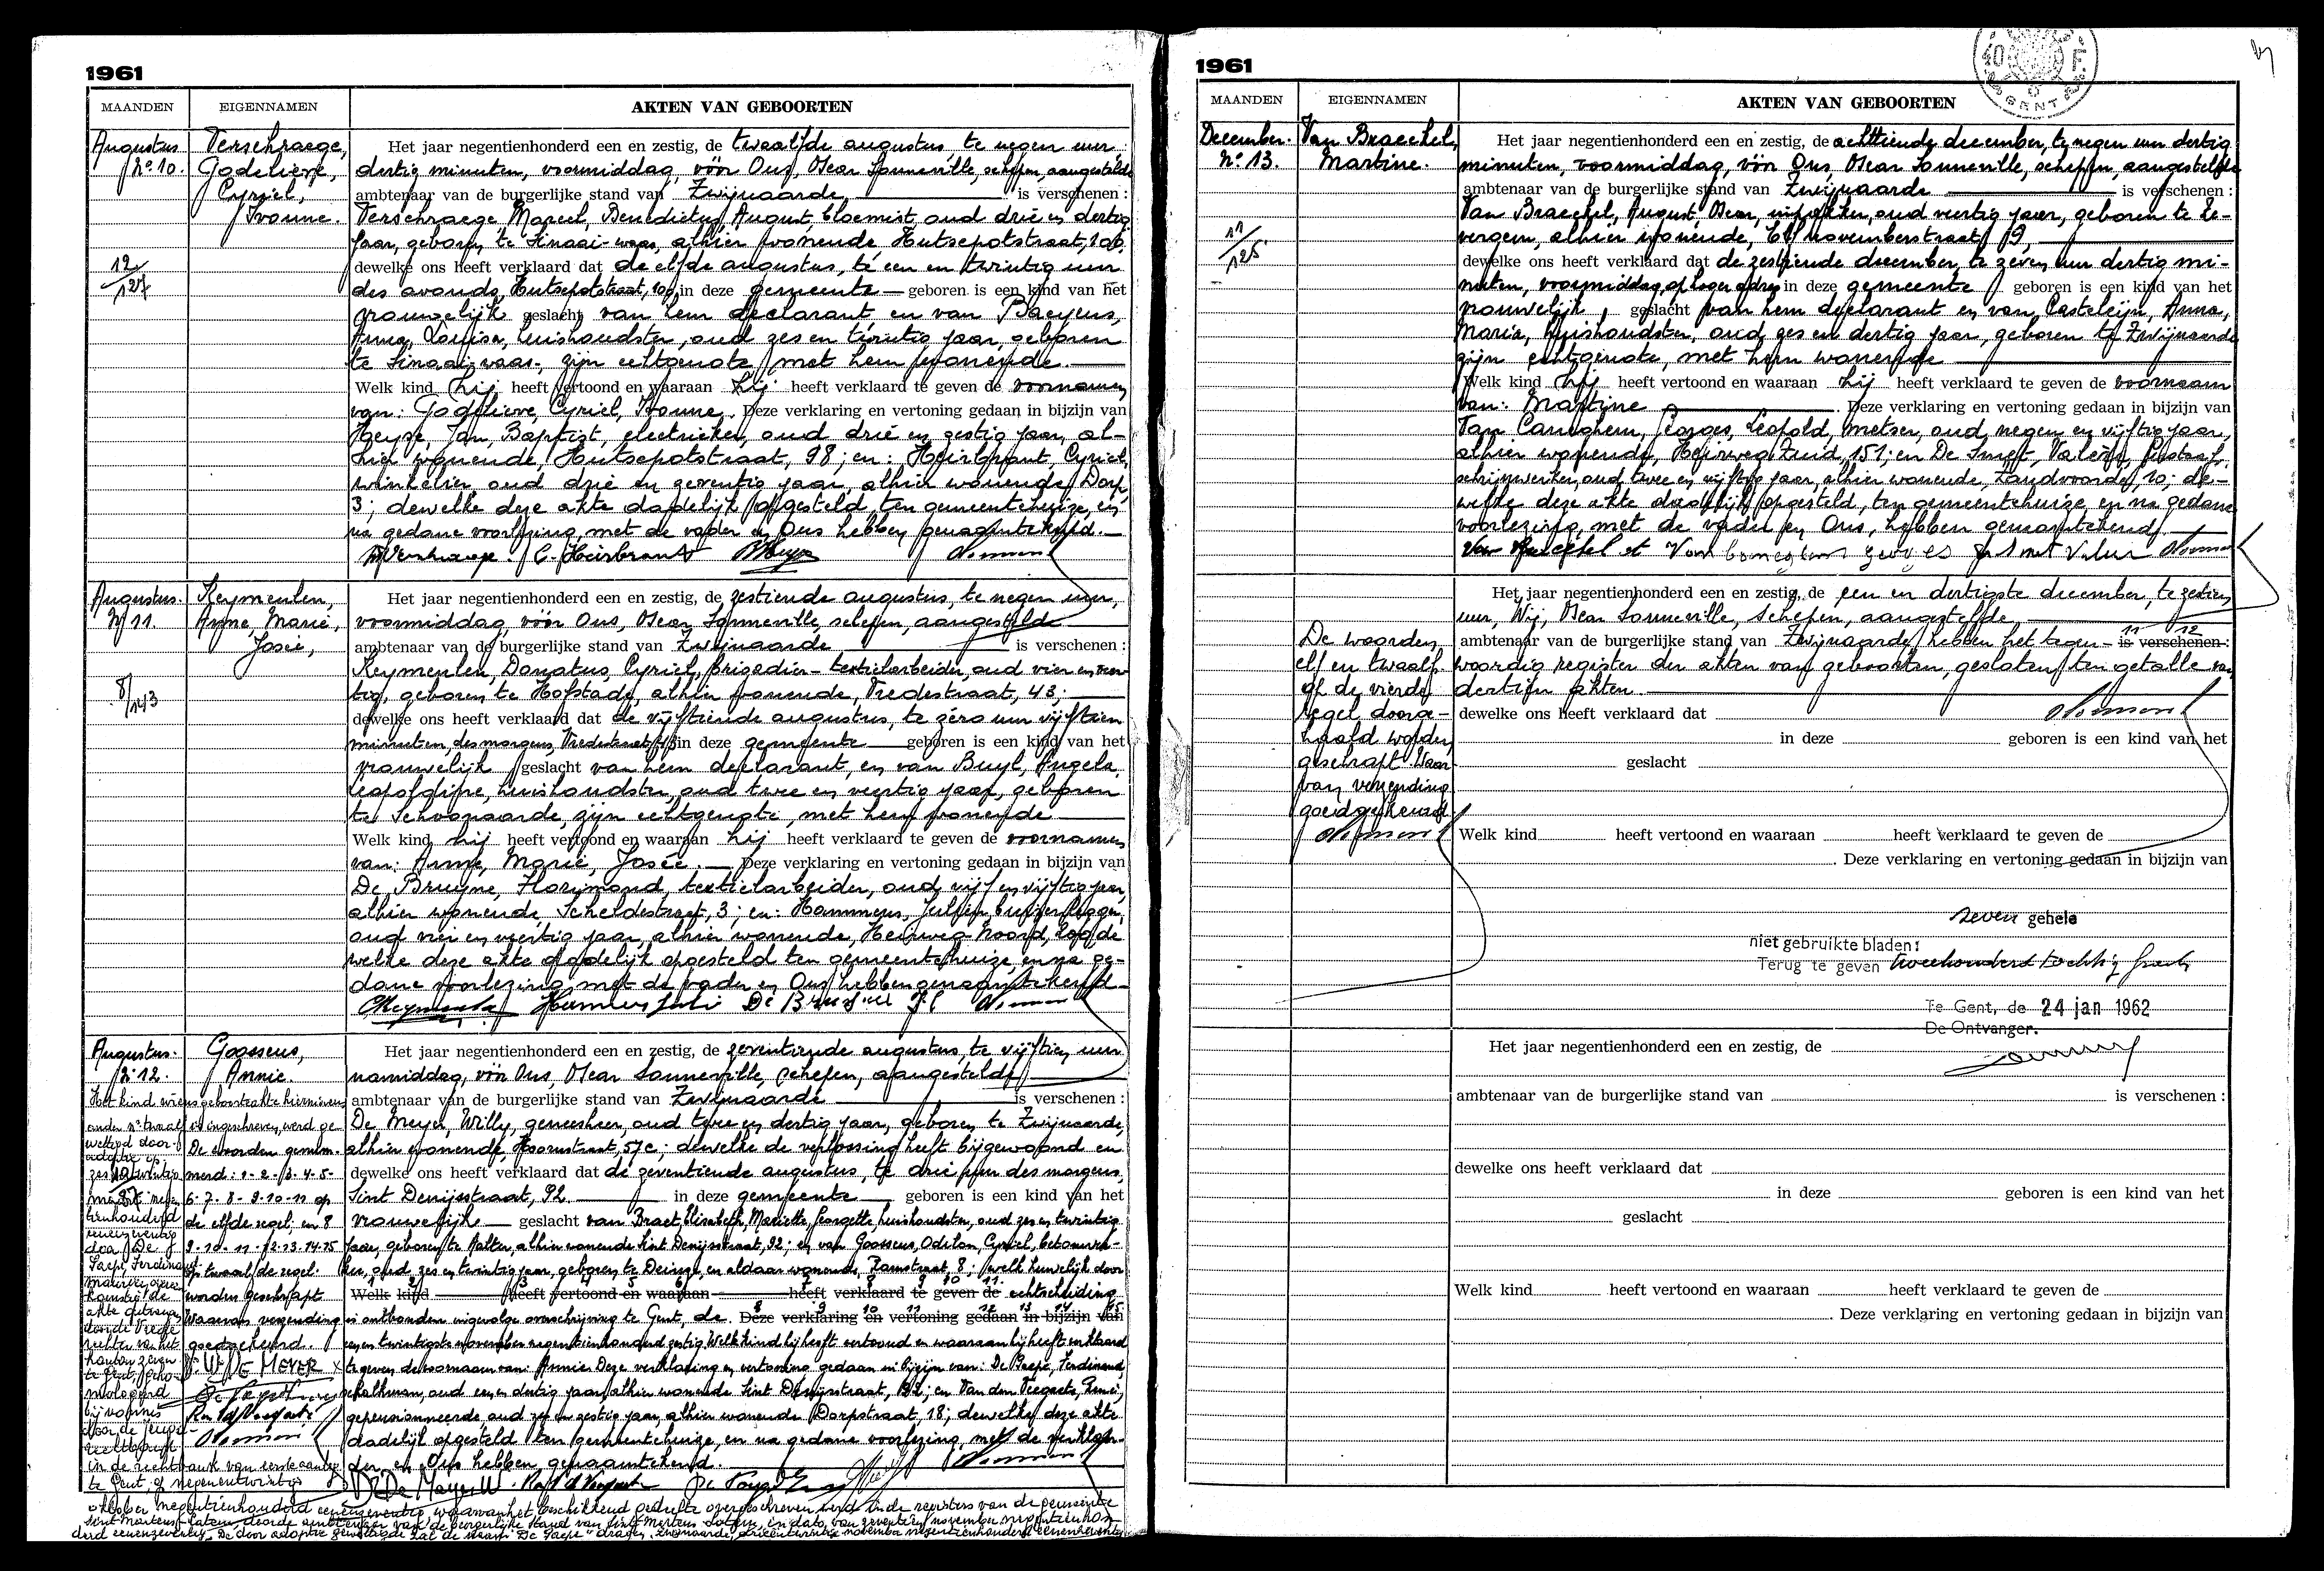 1961
MAANDEN EIGENNAMEN AKTEN VAN GEBOORTEN
Augustus
N° 10.
Verschraege,
Godelieve,
Cyriel,
Ivonne.
12/127
Het jaar negentienhonderd een en zestig, de twaalfde augustus, te negen uur
dertig minuten, voormiddag, vóór Ons, Oscar Sonneville, schepen, aangestelde
ambtenaar van de burgerlijke stand van Zwijnaarde is verschenen :
Verschraege, Marcel, Benedictus, August, bloemist, oud drie en dertig
jaar, geboren te Sinaai-waas, alhier wonende Hutsepotstraat, 106,
dewelke ons heeft verklaard dat de elfde augustus, te een en twintig uur
des avonds, Hutsepotstraat, 106, in deze gemeente geboren is een kind van het
vrouwelijk geslacht van hem declarant en van Baeyens,
Anna, Louisa, huishoudster, oud zes en twintig jaar, geboren
te Sinaai-waas, zijn echtgenote, met hem wonende.
Welk kind hij heeft vertoond en waaraan hij heeft verklaard te geven de voornamen
van: Godelieve, Cyriel, Ivonne. Deze verklaring en vertoning gedaan in bijzijn van
Heyse, Jan, Baptist, electrieker, oud drie en zestig jaar, al-
hier wonende, Hutsepotstraat, 98; en: Heirbrant, Cyriel,
winkelier, oud drie en zeventig jaar, alhier wonende, Dorp,
3; dewelke deze akte dadelijk opgesteld, ten gemeentehuize, en
na gedane voorlezing, met de vader en Ons hebben genaamtekend.
C. Heirbrant
Augustus.
N° 11.
Keymeulen,
Anne, Marie,
Josée,
8/143
Het jaar negentienhonderd een en zestig, de zestiende augustus, te negen uur,
voormiddag, vóór Ons, Oscar Sonneville, schepen, aangestelde
ambtenaar van de burgerlijke stand van Zwijnaarde is verschenen :
Keymeulen, Donatus, Cyriel, brigadier-textielarbeider, oud vier en veer-
tig, geboren te Hofstade, alhier wonende, Vredestraat, 43;
dewelke ons heeft verklaard dat de vijftiende augustus, te zéro uur vijftien
minuten, des morgens, Vredestraat, 43, in deze gemeente geboren is een kind van het
vrouwelijk geslacht van hem declarant, en van Buyl, Angela,
Leopoldine, huishoudster, oud twee en veertig jaar, geboren
te Schoonaarde, zijn echtgenote, met hem wonende
Welk kind hij heeft vertoond en waaraan hij heeft verklaard te geven de voornamen
van: Anne, Marie, Josée. Deze verklaring en vertoning gedaan in bijzijn van
De Bruyne, Florimond, textielarbeider, oud vijf en vijftig jaar,
alhier wonende, Scheldestraat, 3; en: Hammens, Julien,
oud en veertig jaar, alhier wonende, Heirweg-Noord, de-
welke deze akte dadelijk opgesteld ten gemeentehuize, en na ge-
dane voorlezing, met de vader en Ons hebben genaamtekend
Augustus.
N° 12.
Goossens,
Annie.
Het kind wiens geboorteakte hiernevens
onder nr twaalf is ingeschreven, werd ge-
wettigd door
adoptie op
zes en twintig
De woorden genum-
merd: 1-2-3-4-5-
6-7-8-9-10-11 op
de elfde regel; en 8
9-10-11-12-13-14-15
op twaalfde regel
worden geschrapt
Waarvan verzending
goedgekeurd.
W. DE MEYER
Het jaar negentienhonderd een en zestig, de zeventiende augustus, te vijftien uur
namiddag, vóór Ons, Oscar Sonneville, schepen, aangestelde
ambtenaar van de burgerlijke stand van Zwijnaarde is verschenen :
De Meyer, Willy, geneesheer, oud twee en dertig jaar, geboren te Zwijnaarde,
alhier wonende, Hoornstraat, 57c; dewelke de verlossing heeft bijgewoond en
dewelke ons heeft verklaard dat de zeventiende augustus, te drie uur des morgens,
Sint Denijsstraat, 92 in deze gemeente geboren is een kind van het
vrouwelijk geslacht van Braet, Elisabeth, Mariette, Georgette, huishoudster, oud zes en twintig
jaar, geboren te Aalter, alhier wonende Sint Denijsstraat, 92; en van Goossens, Odilon, Cyriel, betonwer-
ker, oud zes en twintig jaar, geboren te Deinze, en aldaar wonende, Ramstraat, 8; welk huwelijk door
Welk kind heeft vertoond en waaraan heeft verklaard te geven de echtscheiding
is ontbonden ingevolge overschrijving te Gent, de Deze verklaring en vertoning gedaan in bijzijn van
een en twintigste november negentienhonderd zestig. Welk kind hij heeft vertoond en waaraan hij heeft verklaard
te geven de voornaam van: Annie. Deze verklaring en vertoning gedaan in bijzijn van: De Paepe, Ferdinand,
oud een en dertig jaar, alhier wonende Sint Denijsstraat, 92; en Van den Veegaete, René,
gepensionneerde, oud zes en zestig jaar, alhier wonende Dorpstraat, 18; dewelke deze akte
dadelijk opgesteld ten gemeentehuize, en na gedane voorlezing, met de verklaar-
der en Ons hebben genaamtekend.
De Meyer W.
in de rechtbank van eerste aanleg
te Gent, op negenentwintig
oktober negentienhonderd eenenzeventig, waarvan het beschikkend gedeelte overgeschreven werd in de registers van de gemeente
Sint Martens-Latem, door de ambtenaar van de burgerlijke stand van Sint-Martens-Latem, in dato van zeventien november negentienhon-
derd eenenzeventig. De door adoptie gewettigde zal de naam "De Paepe" dragen. Zwijnaarde, drieëntwintig november negentienhonderd eenenzeventig
1961
40 F.
GENT
MAANDEN EIGENNAMEN AKTEN VAN GEBOORTEN
December.
N° 13.
Van Braeckel,
Martine.
11/125
Het jaar negentienhonderd een en zestig, de achttiende december, te negen uur dertig
minuten, voormiddag, vóór Ons, Oscar Sonneville, schepen, aangestelde
ambtenaar van de burgerlijke stand van Zwijnaarde is verschenen :
Van Braeckel, August, Oscar, inpakker, oud veertig jaar, geboren te Ze-
vergem, alhier wonende, 11 novemberstraat, 9,
dewelke ons heeft verklaard dat de zestiende december, te zeven uur dertig mi-
nuten, voormiddag, op hoger adres in deze gemeente geboren is een kind van het
vrouwelijk geslacht van hem declarant en van Casteleijn, Anna,
Maria, huishoudster, oud zes en dertig jaar, geboren te Zwijnaarde
zijn echtgenote, met hem wonende
Welk kind hij heeft vertoond en waaraan hij heeft verklaard te geven de voornaam
van: Martine . Deze verklaring en vertoning gedaan in bijzijn van
Van Caneghem, Georges, Leopold, metser, oud negen en vijftig jaar,
alhier wonende, Heirweg Zuid, 151; en De Smet, Valère, Gustaaf,
schrijnwerker, oud twee en vijftig jaar, alhier wonende, Zandvoorde, 10; de-
welke deze akte dadelijk opgesteld, ten gemeentehuize en na gedane
voorlezing, met de vader en Ons, hebben genaamtekend.
De woorden
elf en twaalf
op de vierde
regel doorge-
haald worden
geschrapt. Waar-
van verzending
goedgekeurd
Het jaar negentienhonderd een en zestig, de een en dertigste december, te zestien
uur, Wij, Oscar Sonneville, schepen, aangestelde
ambtenaar van de burgerlijke stand van Zwijnaarde, hebben het tegen- is verschenen :
woordig register der akten van geboorten, gesloten ten getalle van
dertien akten.
dewelke ons heeft verklaard dat
in deze geboren is een kind van het
geslacht
Welk kind heeft vertoond en waaraan heeft verklaard te geven de
. Deze verklaring en vertoning gedaan in bijzijn van
zeven gehele
niet gebruikte bladen:
Terug te geven tweehonderd tachtig frank
Te Gent, de 24 jan 1962
De Ontvanger.
Het jaar negentienhonderd een en zestig, de
ambtenaar van de burgerlijke stand van is verschenen :
dewelke ons heeft verklaard dat
in deze geboren is een kind van het
geslacht
Welk kind heeft vertoond en waaraan heeft verklaard te geven de
. Deze verklaring en vertoning gedaan in bijzijn van